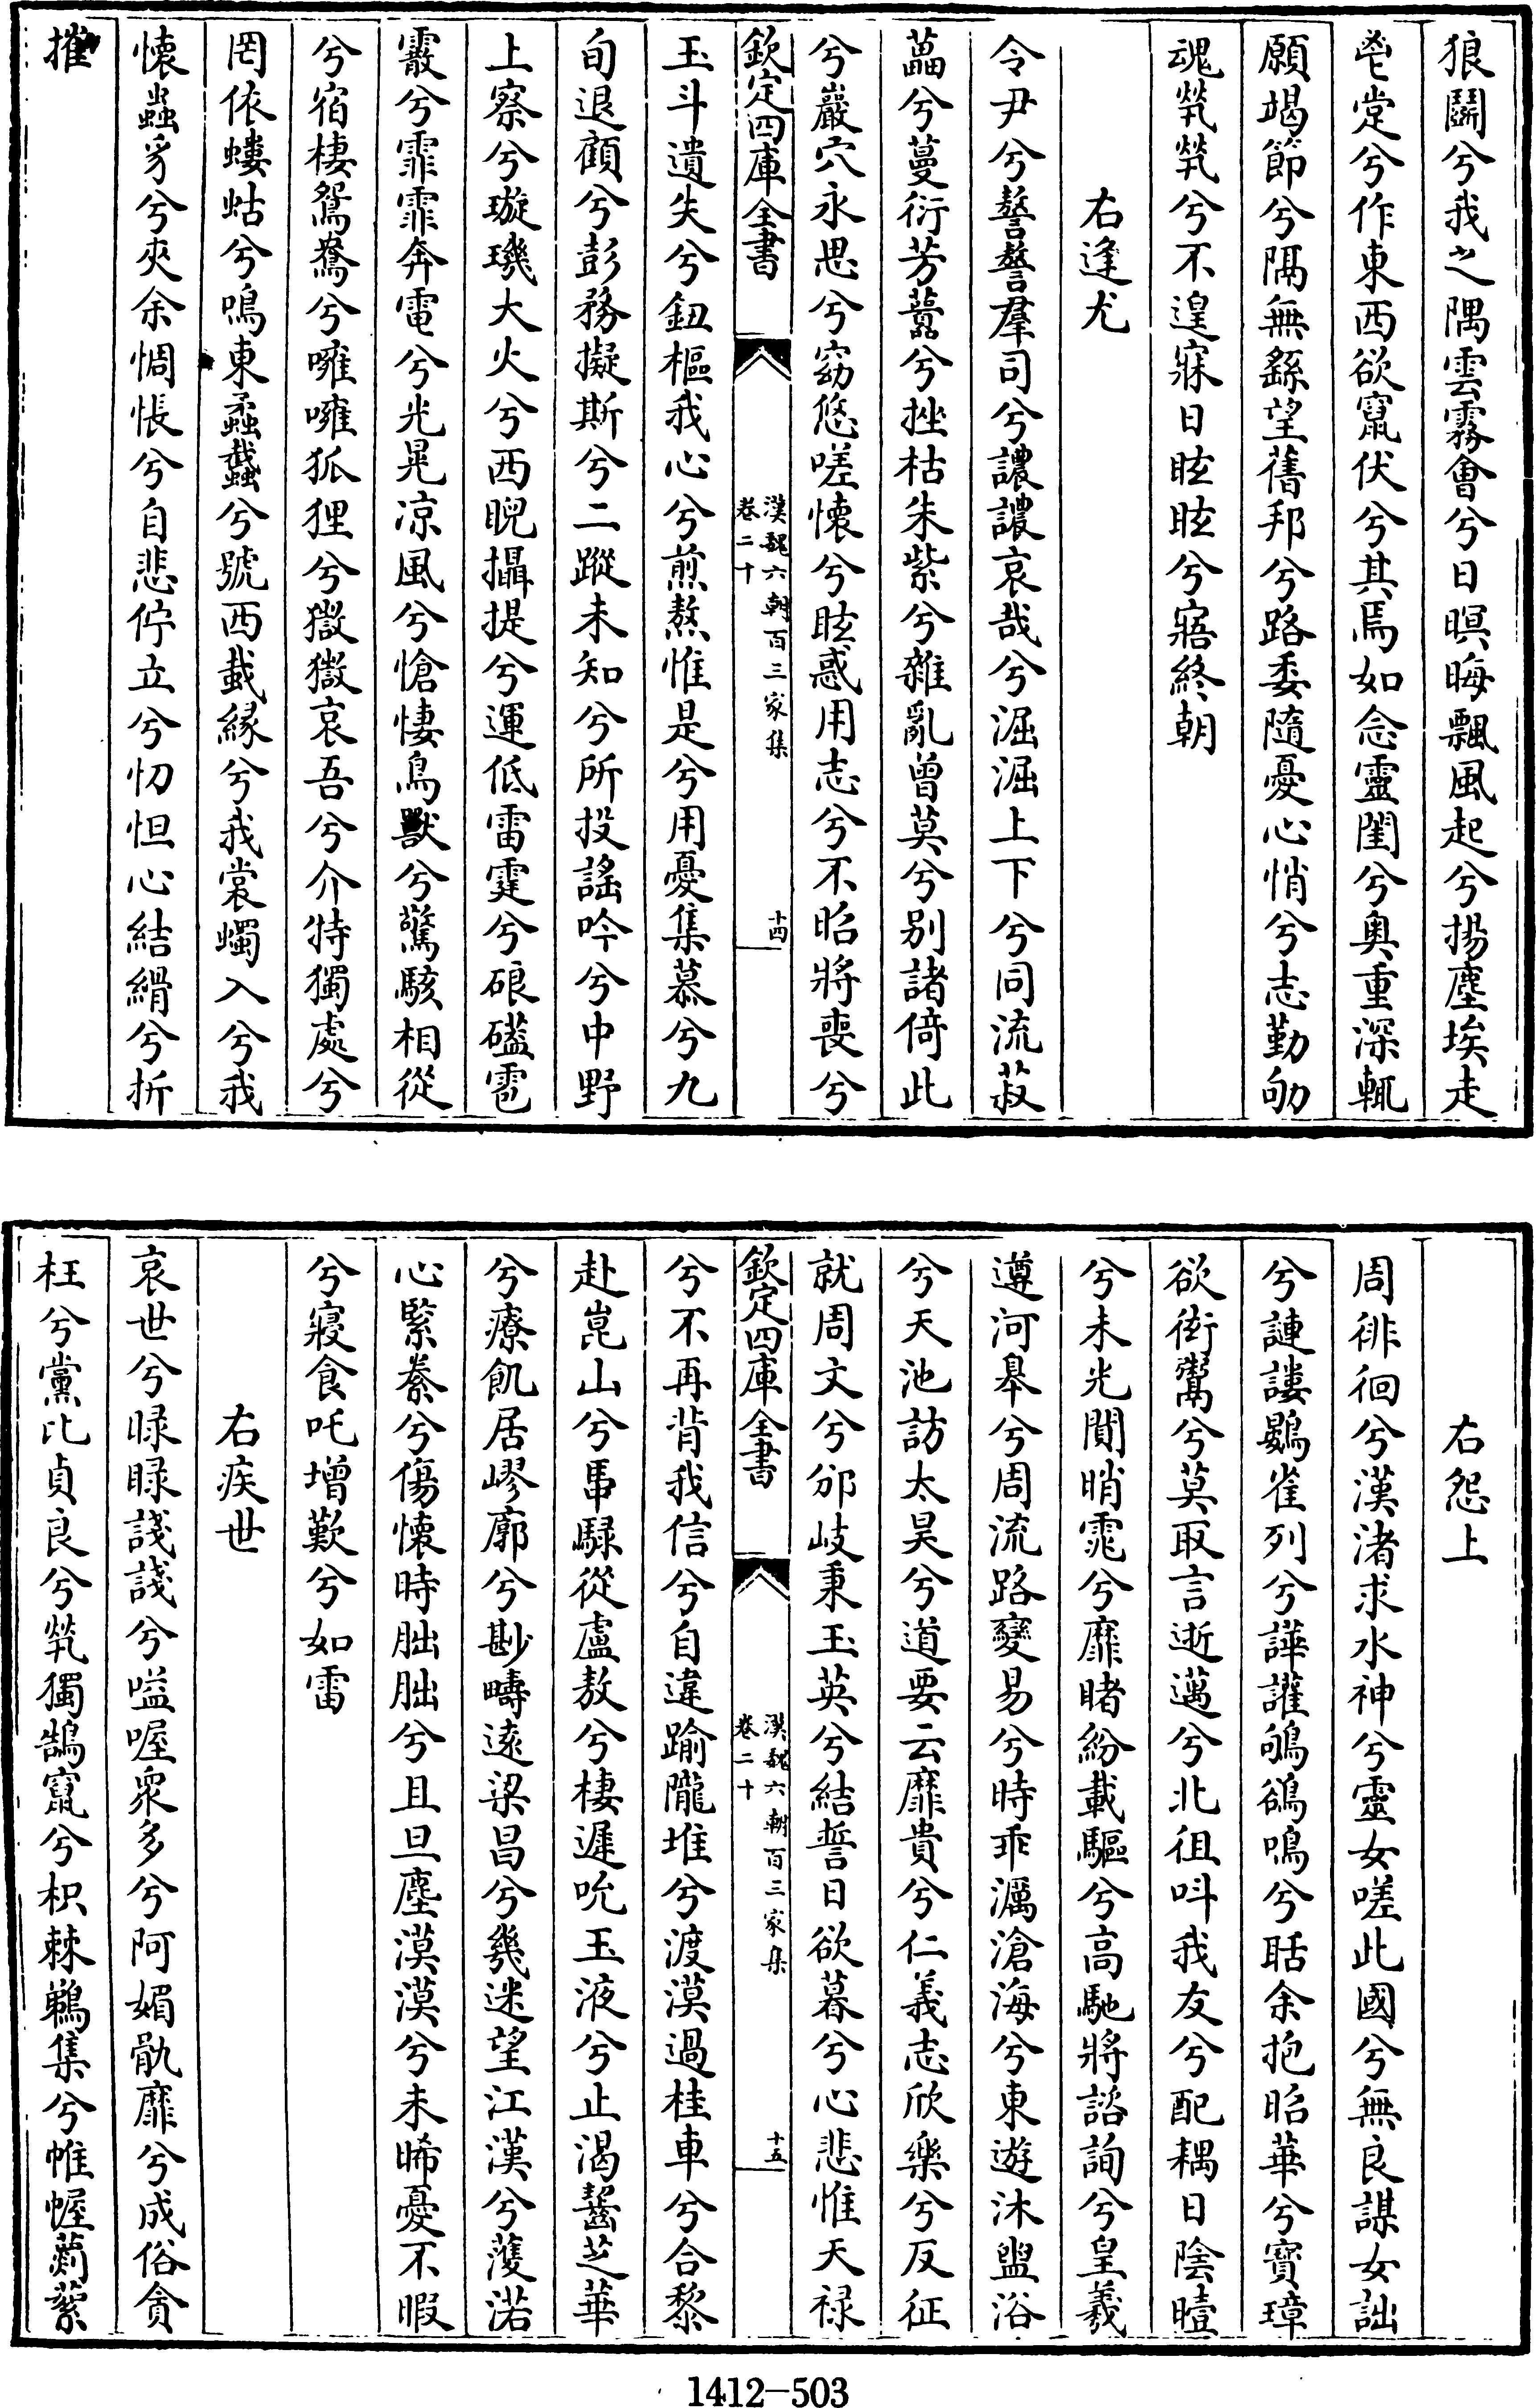 狼鬭兮我之隅雲霧會兮日暝晦飄風起兮揚塵埃走
鬯堂兮作東西欲竄伏兮其焉如念靈閨兮奥重深輒
願竭節兮隔無繇望舊邦兮路委隨憂心悄兮志勤劬
魂煢煢兮不遑寐日眩眩兮寤終朝
右逢尤
令尹兮謷謷羣司兮譨譨哀哉兮淈淈上下兮同流菽
藟兮蔓衍芳虈兮挫枯朱紫兮雜亂曾莫兮别諸倚此
兮巖穴永思兮窈悠嗟懐兮眩惑用志兮不昭將喪兮
欽定四庫全書
漢魏六朝百三家集
卷二十
十四
玉斗遺失兮鈕樞我心兮煎熬惟是兮用憂集慕兮九
旬退顧兮彭務擬斯兮二蹤未知兮所投謠吟兮中野
上察兮璇璣大火兮西睨攝提兮運低雷霆兮硠礚雹
霰兮霏霏奔電兮光晃凉風兮愴悽鳥獸兮驚駭相從
兮宿棲鴛鴦兮噰噰狐狸兮獥獥哀吾兮介特獨處兮
罔依螻蛄兮鳴東蟊蠽兮號西蛓緣兮我裳蠋入兮我
懐蟲豸兮夾余惆悵兮自悲佇立兮忉怛心結縎兮折
摧
右怨上
周徘徊兮漢渚求水神兮靈女嗟此國兮無良謀女詘
兮謰謱鴳雀列兮譁讙鴝鵒鳴兮聒余抱昭華兮寳璋
欲衒鬻兮莫取言逝邁兮北徂叫我友兮配耦日陰曀
兮未光闃睄窕兮靡睹紛載驅兮高馳將諮詢兮皇羲
遵河臯兮周流路變易兮時乖濿滄海兮東遊沐盥浴
兮天池訪太昊兮道要云靡貴兮仁義志欣樂兮反征
就周文兮邠岐秉玉英兮結誓日欲暮兮心悲惟天禄
欽定四庫全書
漢魏六朝百三家集
卷二十
十五
兮不再背我信兮自違踰隴堆兮渡漠過桂車兮合黎
赴崑山兮馽騄從盧敖兮棲遲吮玉液兮止渴齧芝華
兮療飢居嵺廓兮尠疇遠梁昌兮幾迷望江漢兮濩渃
心緊絭兮傷懐時朏朏兮且旦塵漠漠兮未晞憂不暇
兮寢食吒增歎兮如雷
右疾世
哀世兮睩睩諓諓兮嗌喔衆多兮阿媚骫靡兮成俗貪
枉兮黨比貞良兮煢獨鵠竄兮枳棘鵜集兮帷幄蘮蒘
1412-503